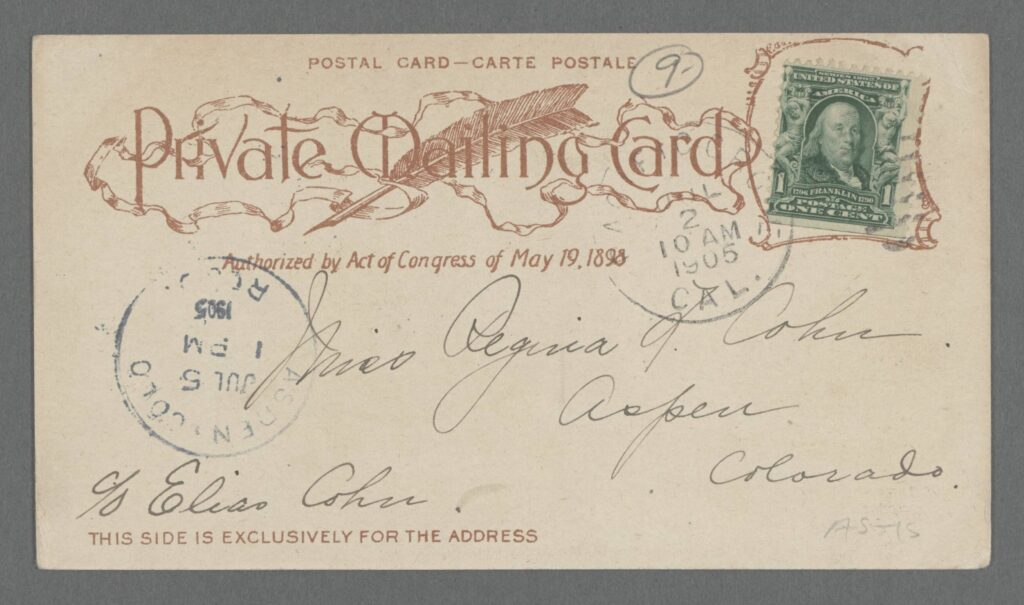 POSTAL CARD—CARTE POSTALE
9.
Private Mailing Card
Authorized by Act of Congress of May 19, 1898
SERIES 1902
UNITED STATES OF
AMERICA
1 1
FRANKLIN
POSTAGE
ONE CENT
2
10 AM
1905
CAL.
REC'D.
1905
1 PM
JUL 5
ASPEN COLO
Miss Regina J. Cohn
Aspen
Colorado.
c/o Elias Cohn.
THIS SIDE IS EXCLUSIVELY FOR THE ADDRESS